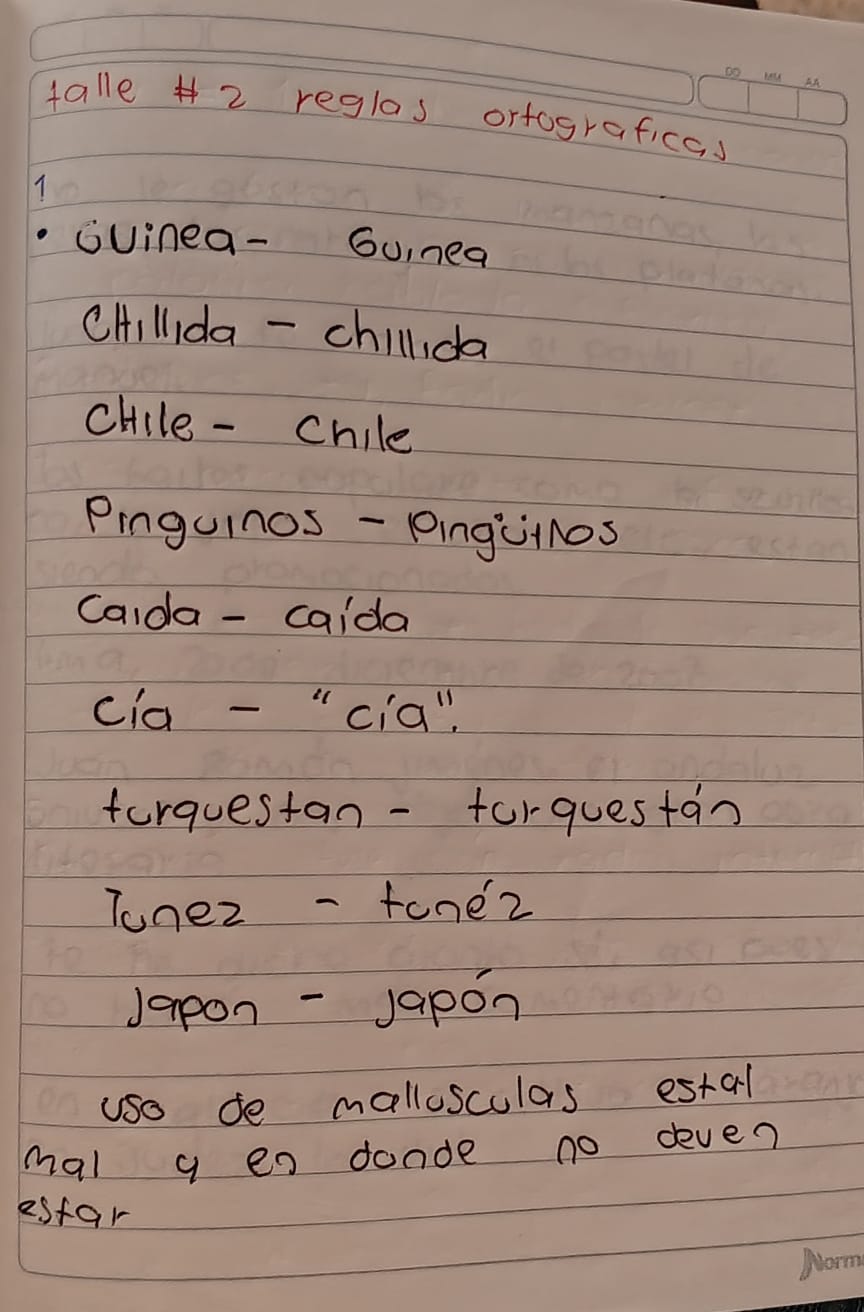 DO MM AA
talle # 2 reglas ortograficas
1
• Guinea - Guinea
CHillida - chillida
CHile - Chile
Pinguinos - pingüinos
Caida - caída
Cía - "cía".
turquestan - turquestán
Tunez - tunéz
Japon - Japón
uso de mallusculas estal
mal y en donde no deven
estar
Norm